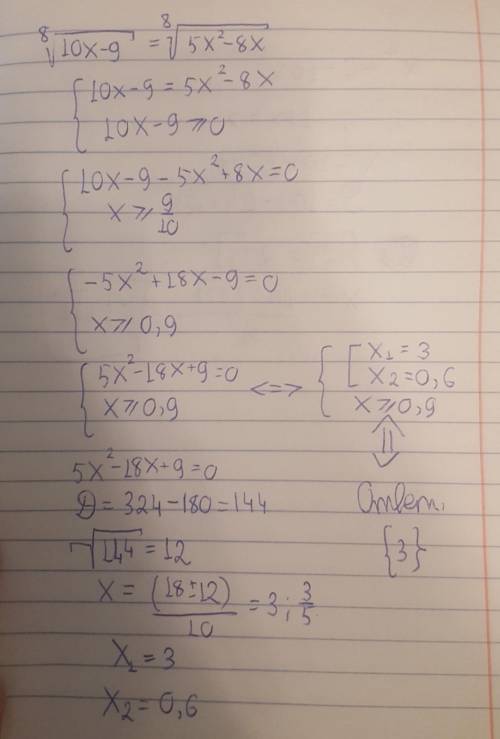 ⁸√(10x-9) = ⁸√(5x²-8x)
{ 10x-9 = 5x²-8x
10x-9 ⩾ 0
{ 10x-9-5x²+8x=0
x ⩾ 9/10
{ -5x²+18x-9=0
x ⩾ 0,9
{ 5x²-18x+9=0
x ⩾ 0,9
<=>
{ [ x₁ = 3
x₂ = 0,6
x ⩾ 0,9
⇕
Ответ:
{3}
5x²-18x+9=0
D = 324-180=144
√144 = 12
x = (18±12)/10 = 3; 3/5
x₁ = 3
x₂ = 0,6